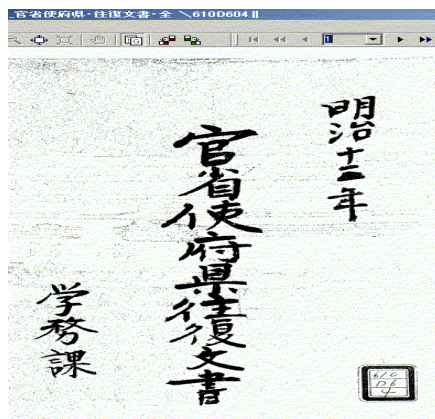 _官省使府県・往復文書・全 ＼610D604 ||
1
明治十年
官省使府県往復文書
学務課
610
D6
4